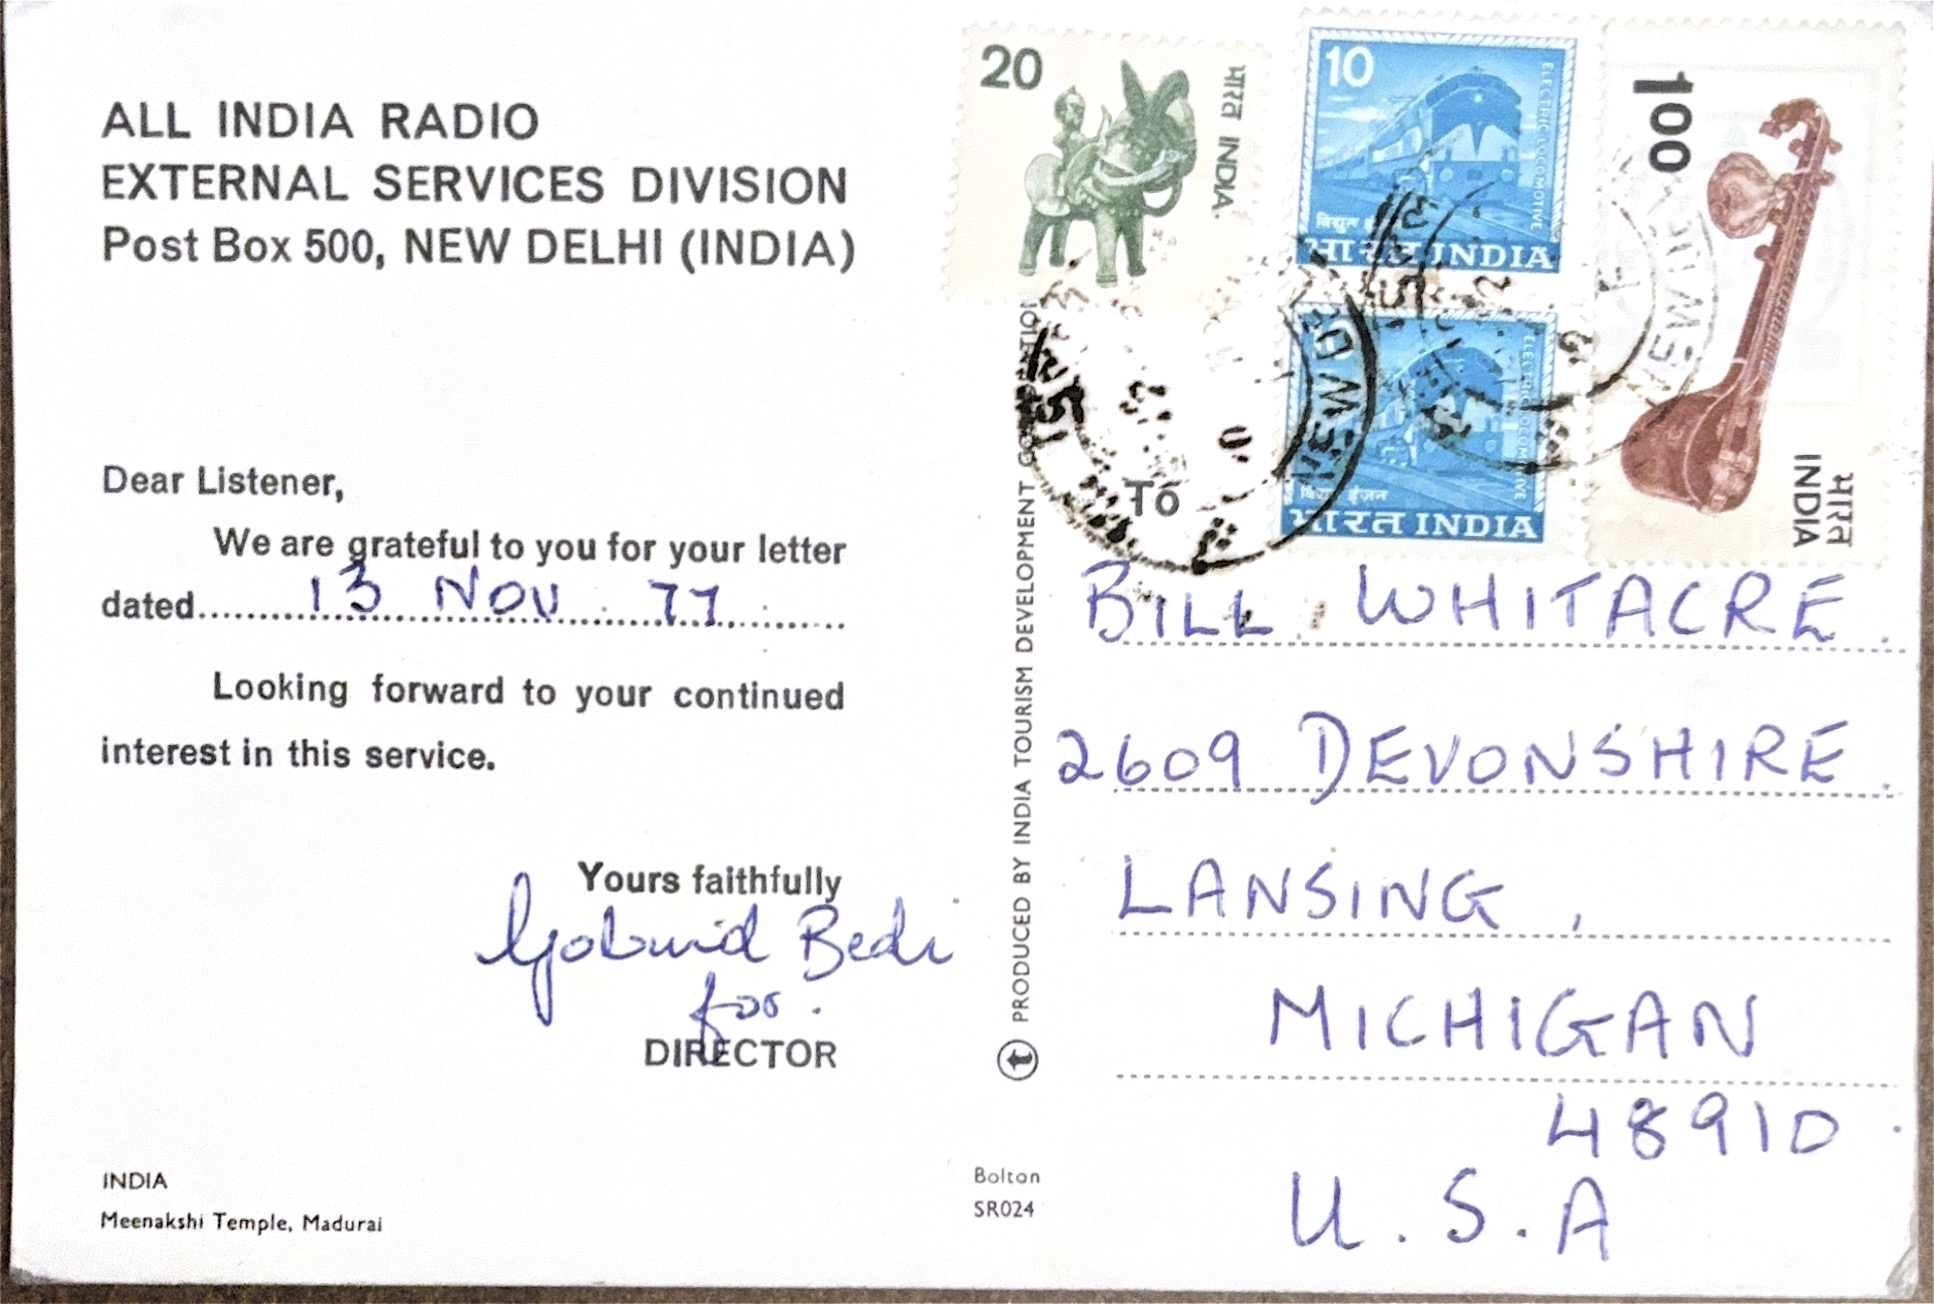 ALL INDIA RADIO
EXTERNAL SERVICES DIVISION
Post Box 500, NEW DELHI (INDIA)
Dear Listener,
We are grateful to you for your letter
dated 13 NOV 77
Looking forward to your continued
interest in this service.
Yours faithfully
Gobind Bedi
for
DIRECTOR
INDIA
Meenakshi Temple, Madurai
PRODUCED BY INDIA TOURISM DEVELOPMENT CORPORATION
Bolton
SR024
20
भारत INDIA
10
ELECTRIC LOCOMOTIVE
विद्युत
भारत INDIA
ELECTRIC LOCOMOTIVE
इंजन
भारत INDIA
1.00
भारत
INDIA
To
BILL WHITACRE
2609 DEVONSHIRE
LANSING,
MICHIGAN
48910
U.S.A